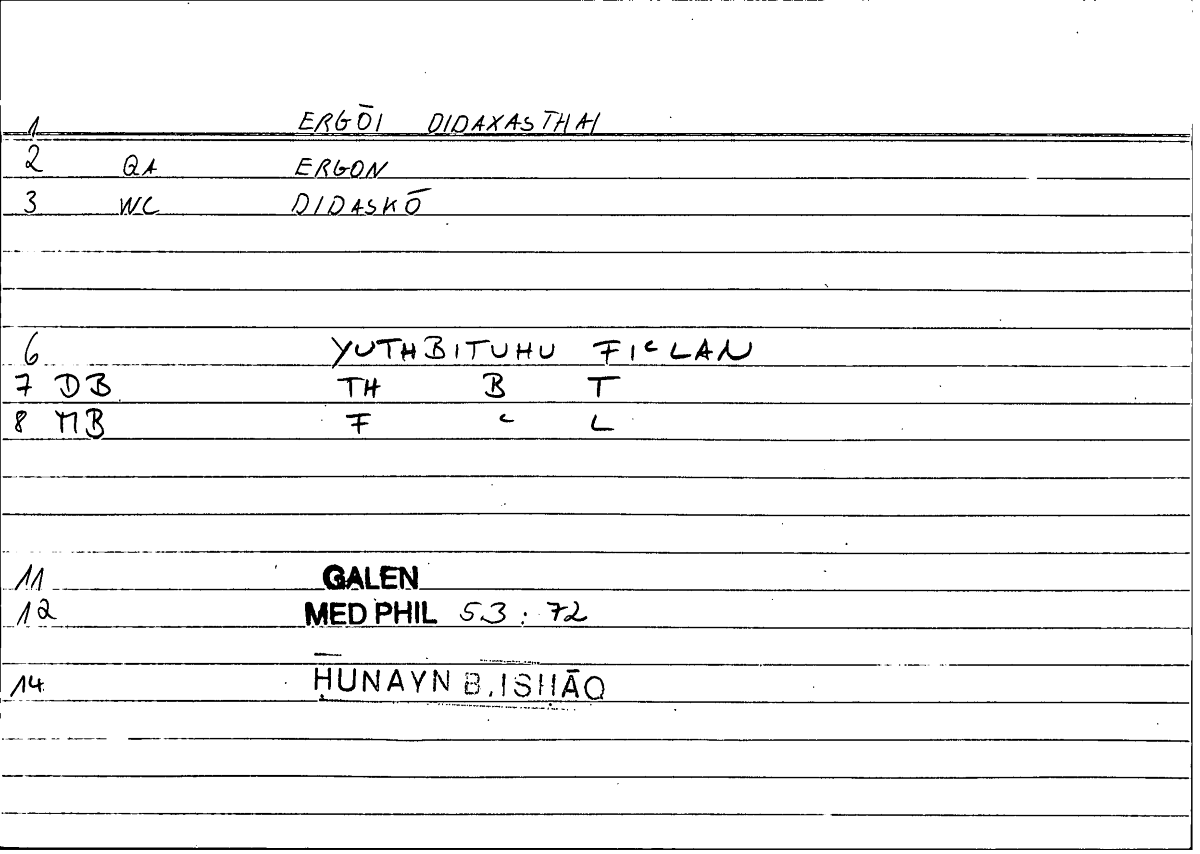 1 ERGŌI DIDAXASTHAI
2 QA ERGON
3 WC DIDASKŌ
6 YUTHBITUHU FIᶜLAN
7 DB TH B T
8 MB F ᶜ L
11 GALEN
12 MED PHIL 53 : 72
14 ḤUNAYN B. ISḤĀQ